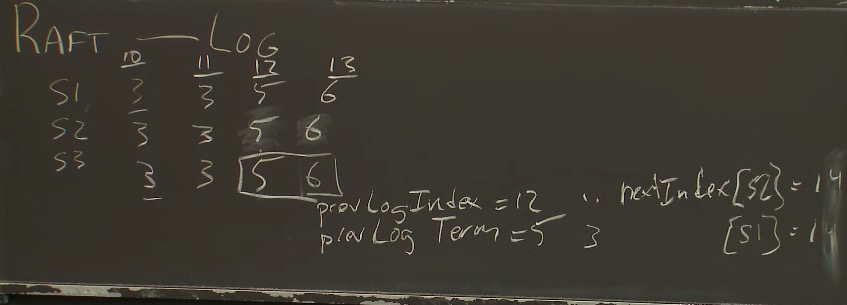 RAFT — LOG
10 11 12 13
S1 3 3 5 6
S2 3 3 5 6
S3 3 3 5 6
prevLogIndex = 12 11 nextIndex[S2] = 14
prevLogTerm = 5 3 [S1] = 14